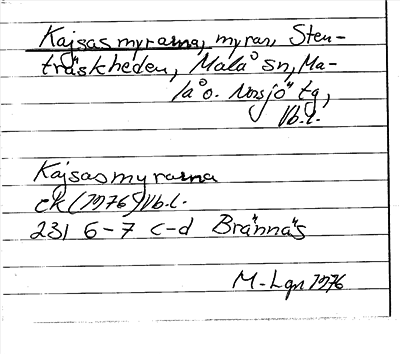 Kajsasmyrarna, myrar, Sten-
träskheden, Malå sn, Ma-
lå o. Norsjö tg,
Vb.l.
Kajsasmyrarna
ek (1976) Vb.l.
231 6-7 c-d Brännäs
M-Lgn 1976